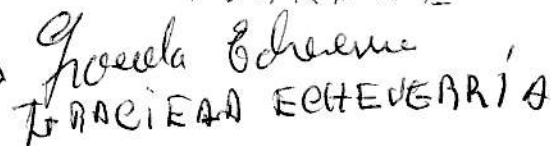 Graciela Echeverria
GRACIELA ECHEVERRÍA